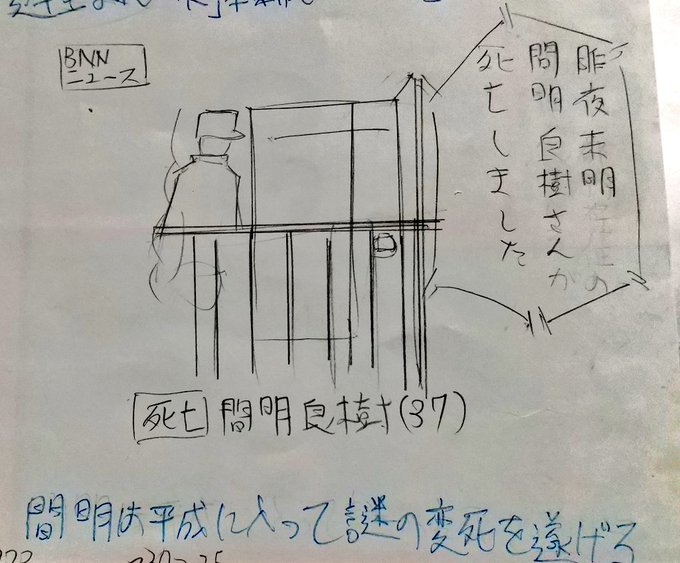 BNN
ニュース
昨夜未明在住の
間明良樹さんが
死亡しました
死亡 間明良樹(37)
間明は平成に入って謎の変死を遂げる